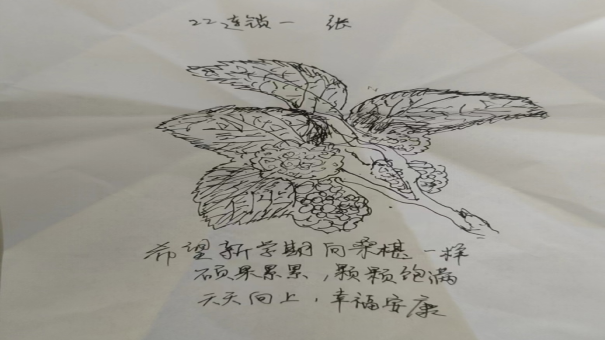 22连锁一 张
希望新学期向桑椹一样
硕果累累，颗颗饱满
天天向上，幸福安康